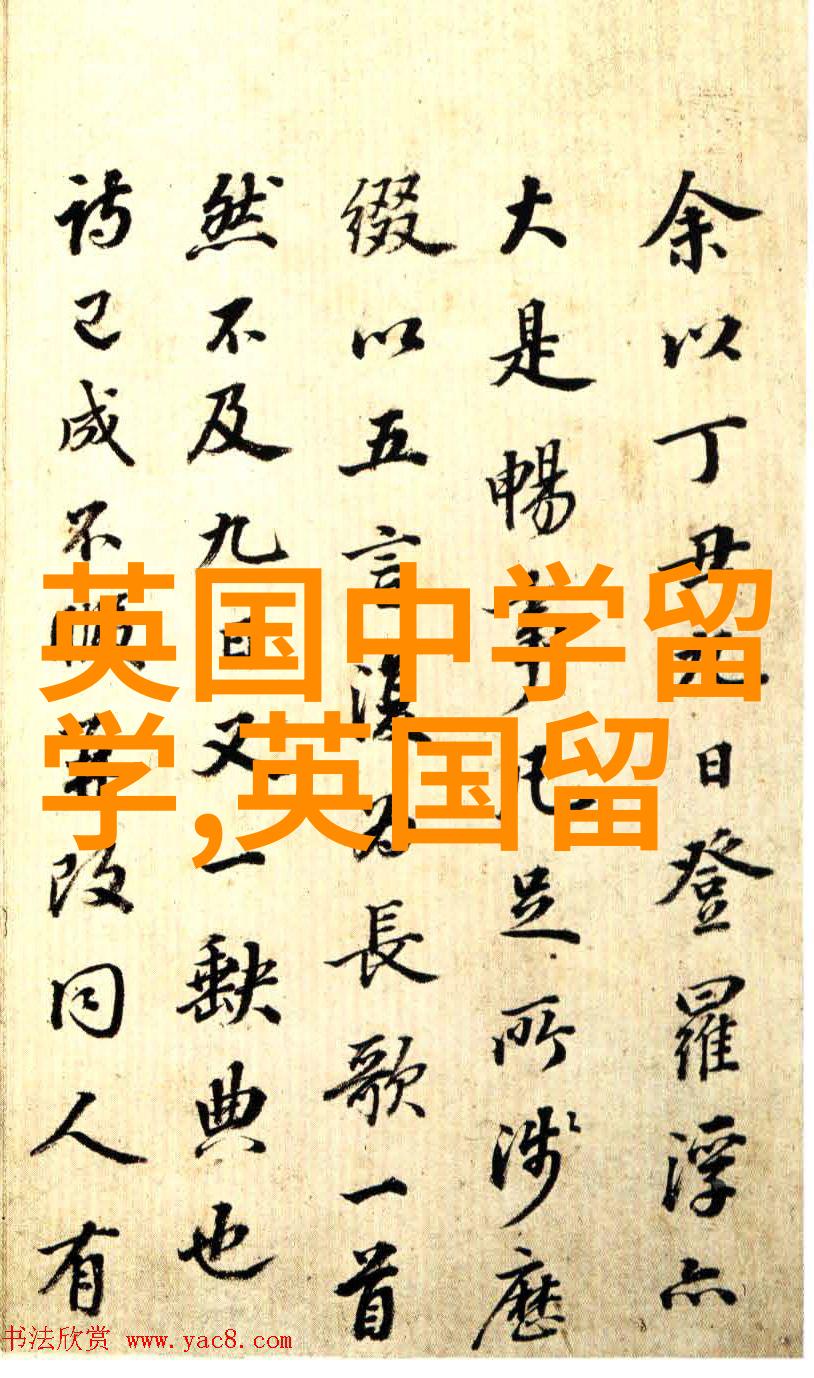 余以丁丑九日登羅浮亦
大是暢事凡足所涉歷
綴以五言復為長歌一首
然不及九日又一缺典也
詩已成不改同人有
英国中学留
学,英国留
书法欣赏 www.yac8.com